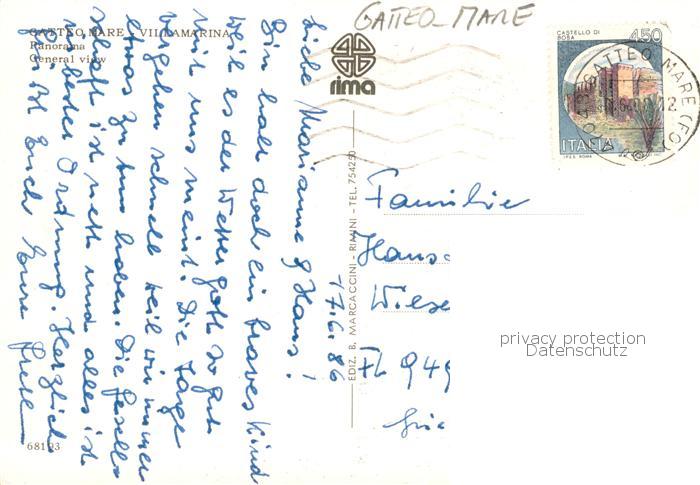 GATTEO MARE
GATTEO MARE - VILLAMARINA
Panorama
General view
rima
CASTELLO DI
ROSA
450
ITALIA
I.P.Z.S. ROMA
GATTEO MARE (FO)
17.6.86
Liebe Marianne & Hans!
Bin halt doch ein braves Kind
weil es der Wetter gott so gut
mit uns meint. Die Tage
vergehen schnell weil wir immer
etwas zu tun haben. Die Gesell-
schaft ist nett und alles ist
in bester Ordnung. Herzlich
grüßt Euch Eure
EDIZ. B. MARCACCINI - RIMINI - TEL. 754250
Familie
Hans
Wilse
FL 949
privacy protection
Datenschutz
68193